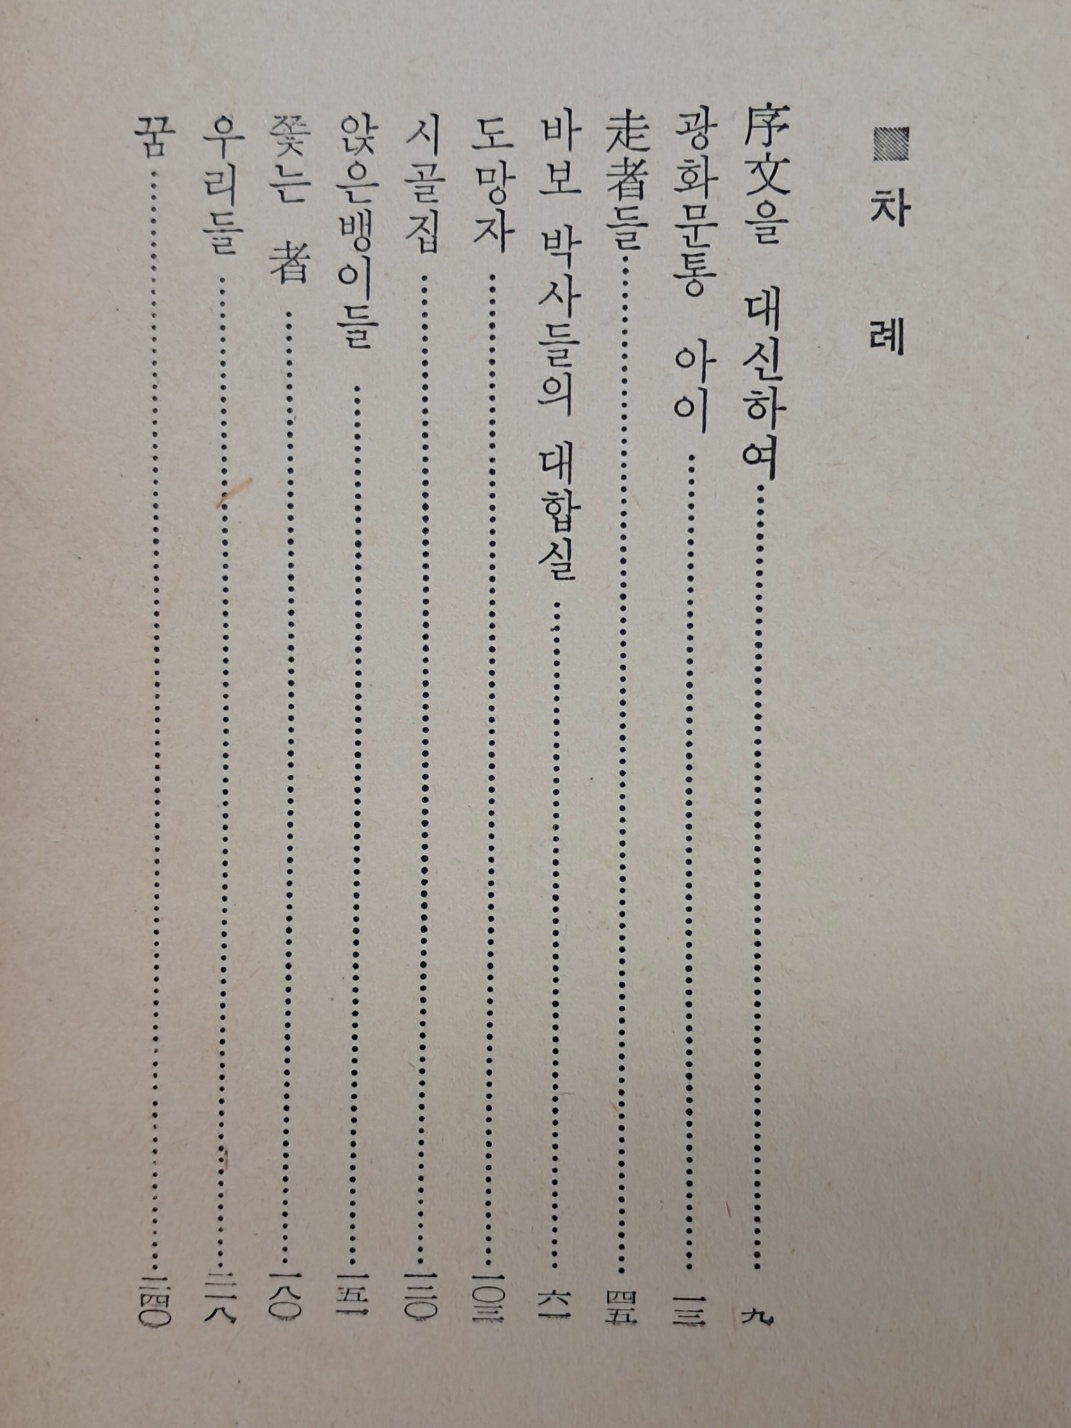 차 례
序文을 대신하여 九
광화문통 아이 一三
走者들 四五
바보 박사들의 대합실 六一
도망자 一〇三
시골집 一三〇
앉은뱅이들 一五一
쫓는 者 一八〇
우리들 二一八
꿈 二四〇